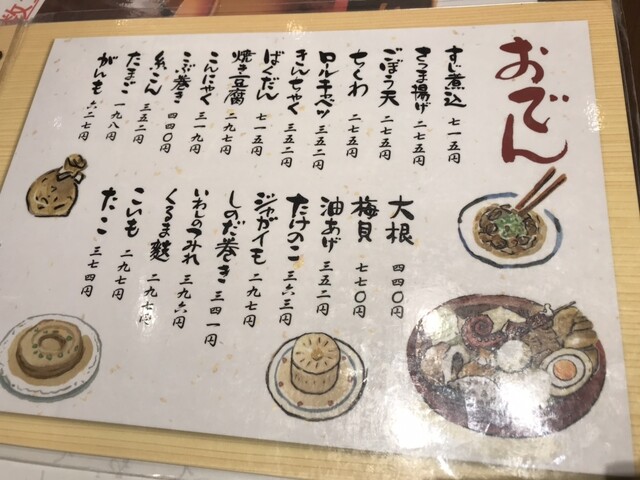 おでん
すじ煮込 七一五円
さつま揚げ 二七五円
ごぼう天 二七五円
ちくわ 二七五円
ロールキャベツ 三五二円
きんちゃく 三五二円
ばくだん 七一五円
焼き豆腐 二九七円
こんにゃく 三一九円
こぶ巻き 四四〇円
糸こん 三五二円
たまご 一九八円
がんも 六二七円
大根 四四〇円
梅貝 七七〇円
油あげ 三五二円
たけのこ 三六三円
ジャガイモ 二九七円
しのだ巻き 三四一円
いわしのつみれ 三九六円
くるま麩 二九七円
こいも 二九七円
たこ 三七四円